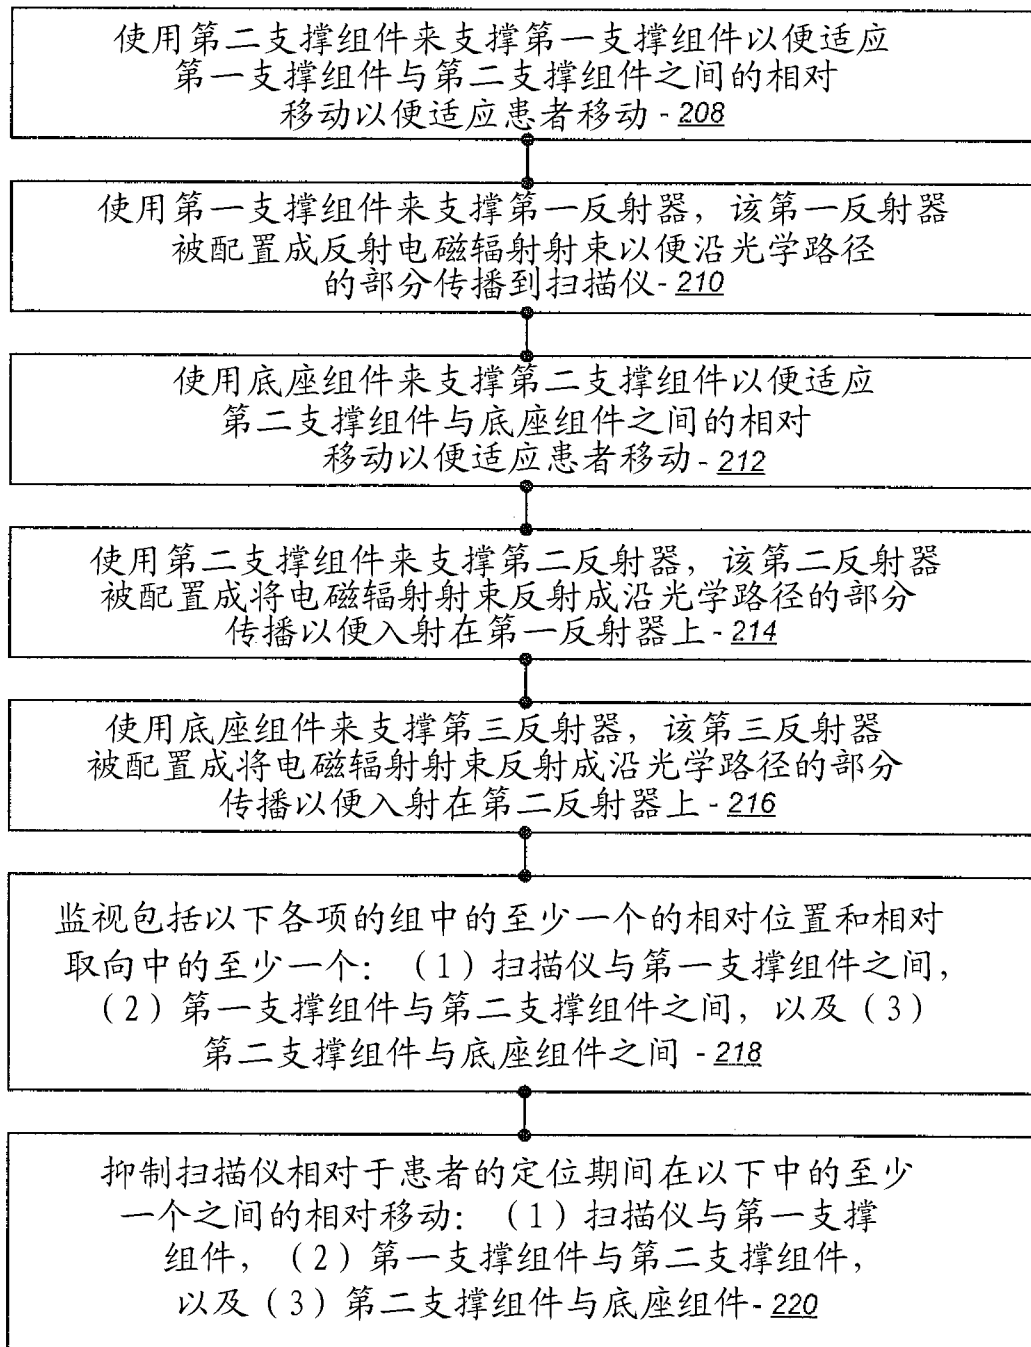 使用第二支撑组件来支撑第一支撑组件以便适应
第一支撑组件与第二支撑组件之间的相对
移动以便适应患者移动 - 208
使用第一支撑组件来支撑第一反射器，该第一反射器
被配置成反射电磁辐射射束以便沿光学路径
的部分传播到扫描仪- 210
使用底座组件来支撑第二支撑组件以便适应
第二支撑组件与底座组件之间的相对
移动以便适应患者移动 - 212
使用第二支撑组件来支撑第二反射器，该第二反射器
被配置成将电磁辐射射束反射成沿光学路径的部分
传播以便入射在第一反射器上 - 214
使用底座组件来支撑第三反射器，该第三反射器
被配置成将电磁辐射射束反射成沿光学路径的部分
传播以便入射在第二反射器上 - 216
监视包括以下各项的组中的至少一个的相对位置和相对
取向中的至少一个：（1）扫描仪与第一支撑组件之间，
（2）第一支撑组件与第二支撑组件之间，以及（3）
第二支撑组件与底座组件之间 - 218
抑制扫描仪相对于患者的定位期间在以下中的至少
一个之间的相对移动：（1）扫描仪与第一支撑
组件，（2）第一支撑组件与第二支撑组件，
以及（3）第二支撑组件与底座组件- 220